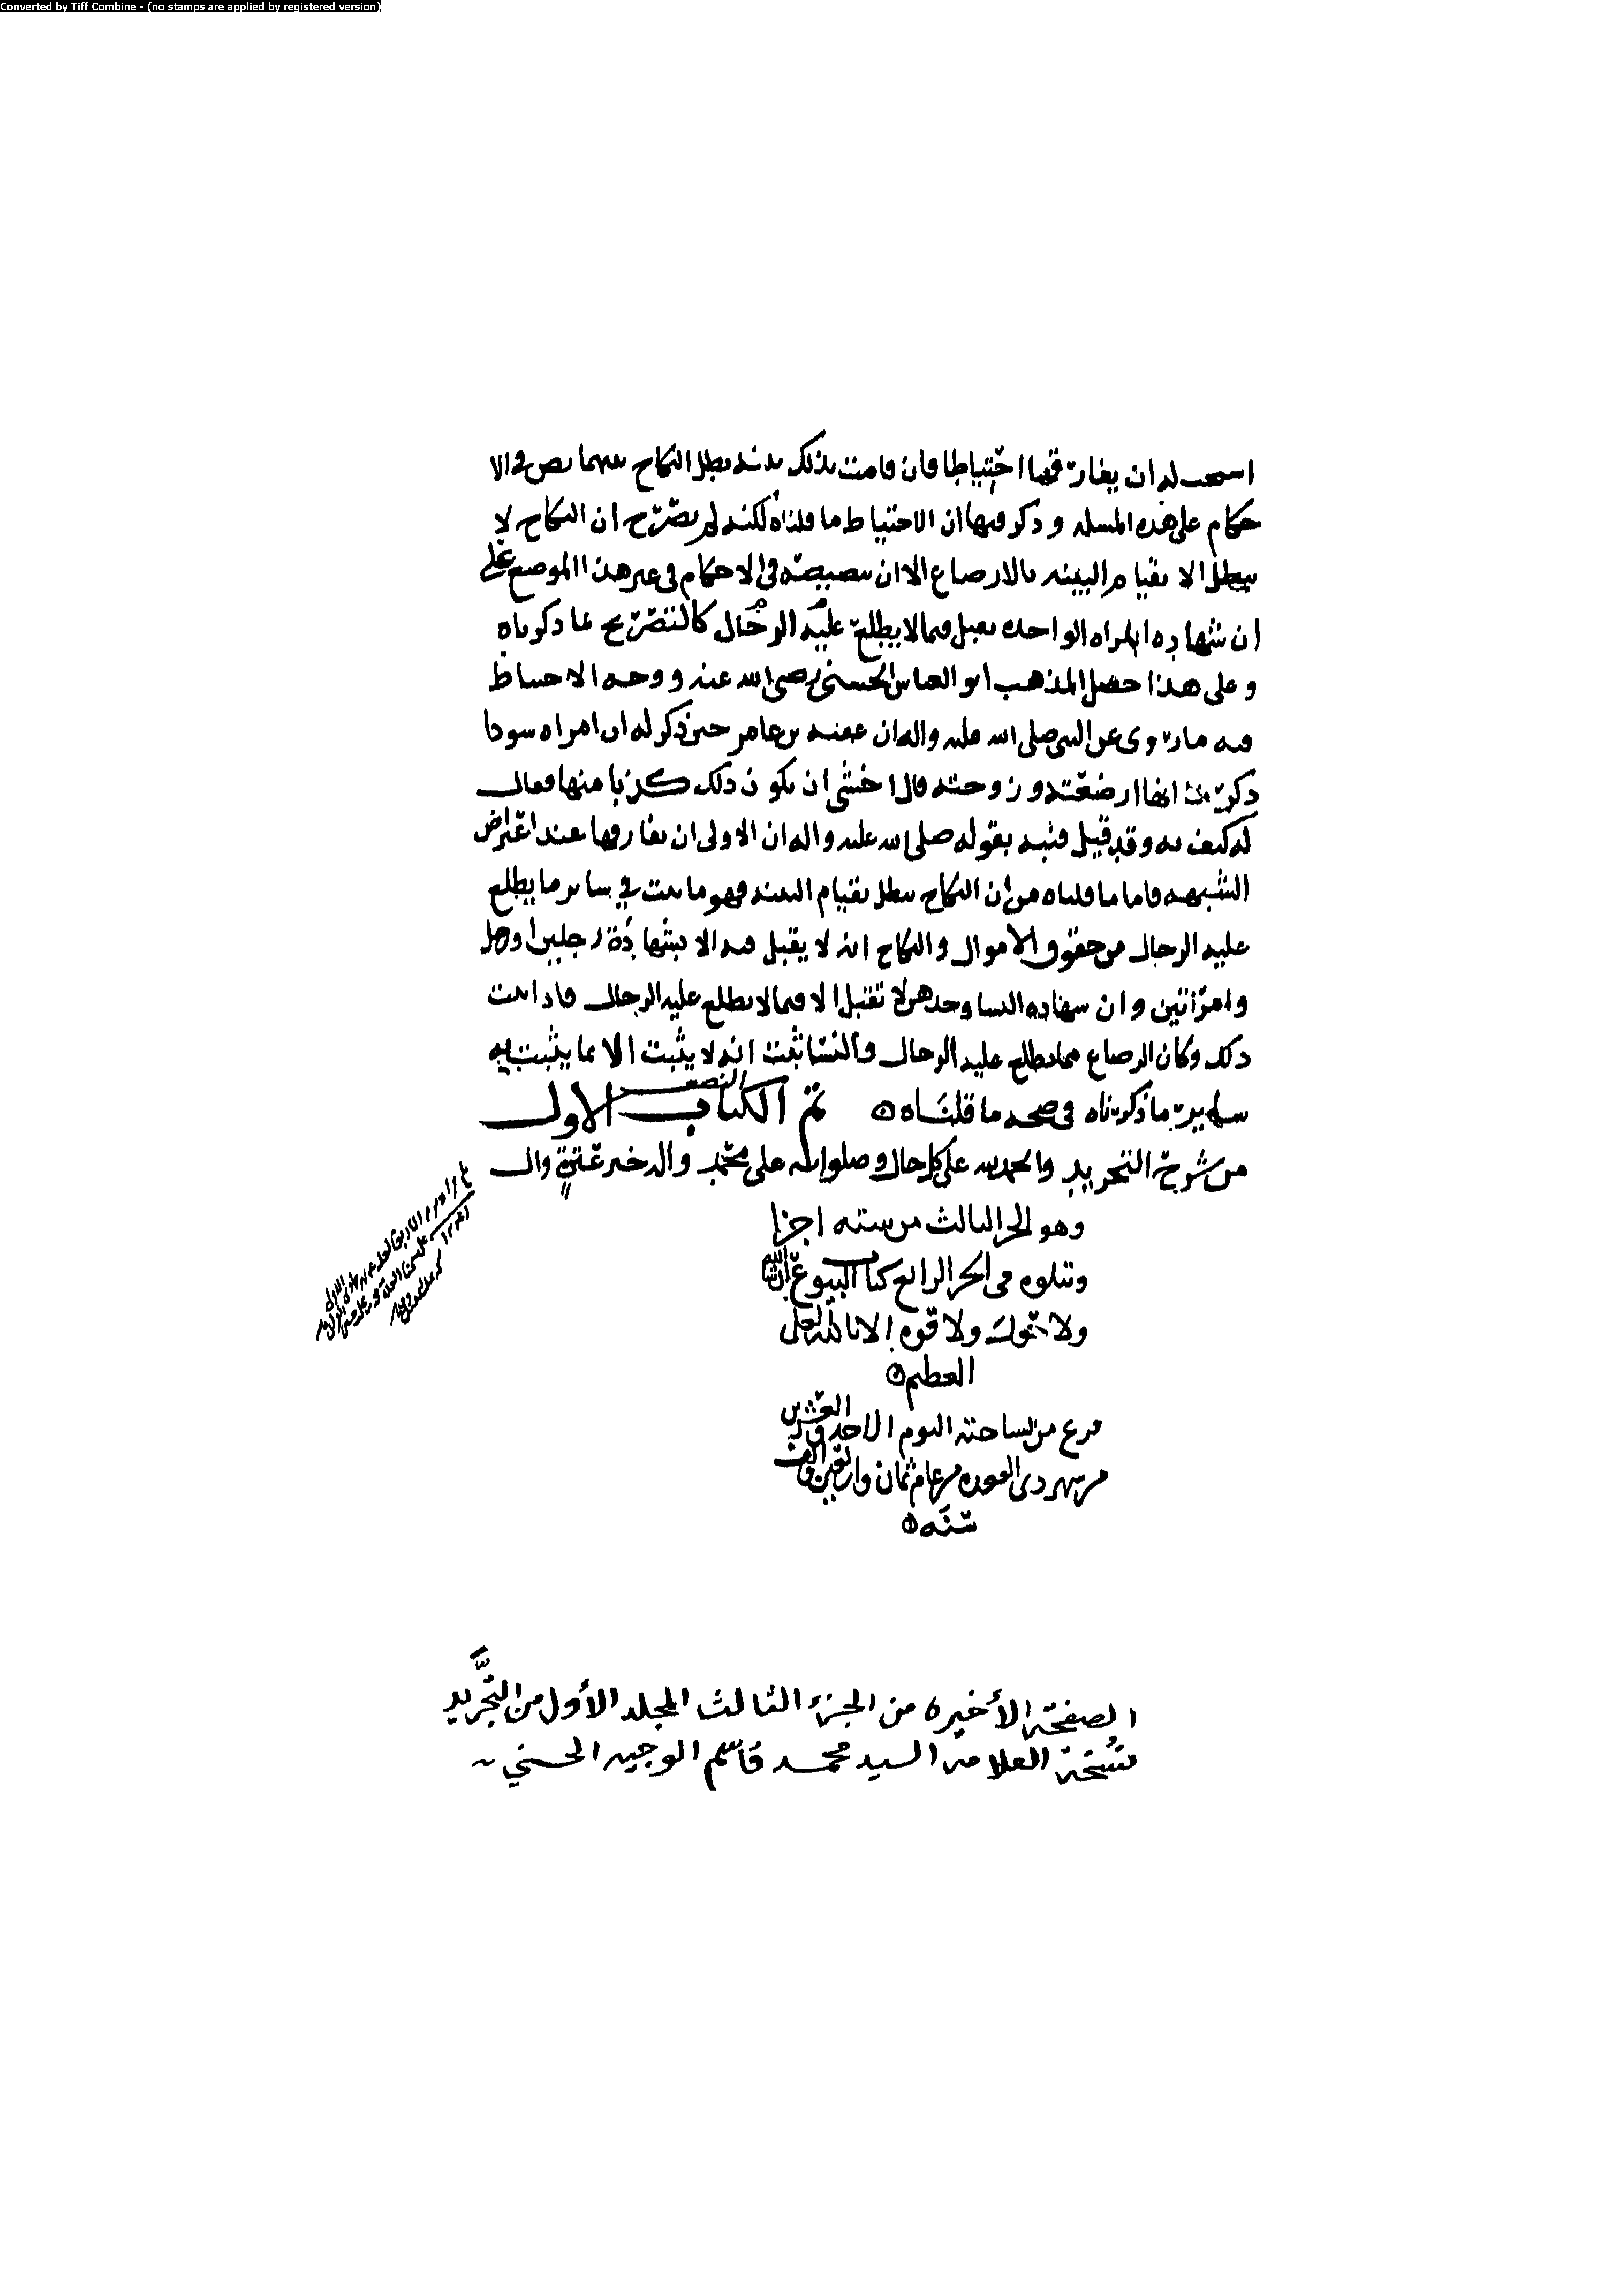 Converted by Tiff Combine - (no stamps are applied by registered version)
استحب له ان يفارقها احتياطا فان قامت بذلك بينه بطل النكاح بينهما نص في الا
حكام على هذه المسله وذكر فيها ان الاحتياط ما قلناه لكنه لم يصرح ان النكاح لا
يبطل الا بقيام البينه بالارضاع الا ان تنصيصه في الاحكام في غير هذا الموضع على
ان شهاده المراه الواحده تقبل فيما لا يطلع عليه الرجال كالتصريح بما ذكرناه
وعلى هذا حصل المذهب ابو العباس الحسني رضي الله عنه ووجه الاحتياط
فيه ما روى عن النبي صلى الله عليه واله ان عقبه بن عامر حين ذكر له ان امراه سودا
ذكرت انها ارضعته وزوجته قال اخشى ان يكون ذلك كذبا منها فقال
له كيف به وقد قيل فنبه بقوله صلى الله عليه واله ان الاولى ان يفارقها عند اعتراض
الشبهه فاما ما قلناه من ان النكاح يبطل بقيام البينه فهو ما ثبت في ساير ما يطلع
عليه الرجال من حقوق الاموال والنكاح انه لا يقبل فيه الا بشهادة رجلين او رجل
وامراتين وان شهاده النسا وحدهن لا تقبل الا فيما لا يطلع عليه الرجال فاذا ثبت
ذلك وكان الرضاع مما يطلع عليه الرجال والنسا ثبت انه لا يثبت الا بما يثبت به
ساير ما ذكرناه في صحه ما قلناه تم الكتاب النصف الاول
من شرح التجريد والحمد لله على كل حال وصلواته على محمد واله خير عترة وال
وهو الجز الثالث من سته اجزا
ويتلوه في الجز الرابع كتاب البيوع ان شا الله
ولا حول ولا قوه الا بالله العلي
العظيم
فرغ من نساخته اليوم الاحد
من شهر ذي القعده من عام ثمان واربعين والف
سنه
الصفحة الأخيرة من الجزء الثالث المجلد الأول من التجريد
نسخة العلامه السيد محمد قاسم الوجيه الحسني